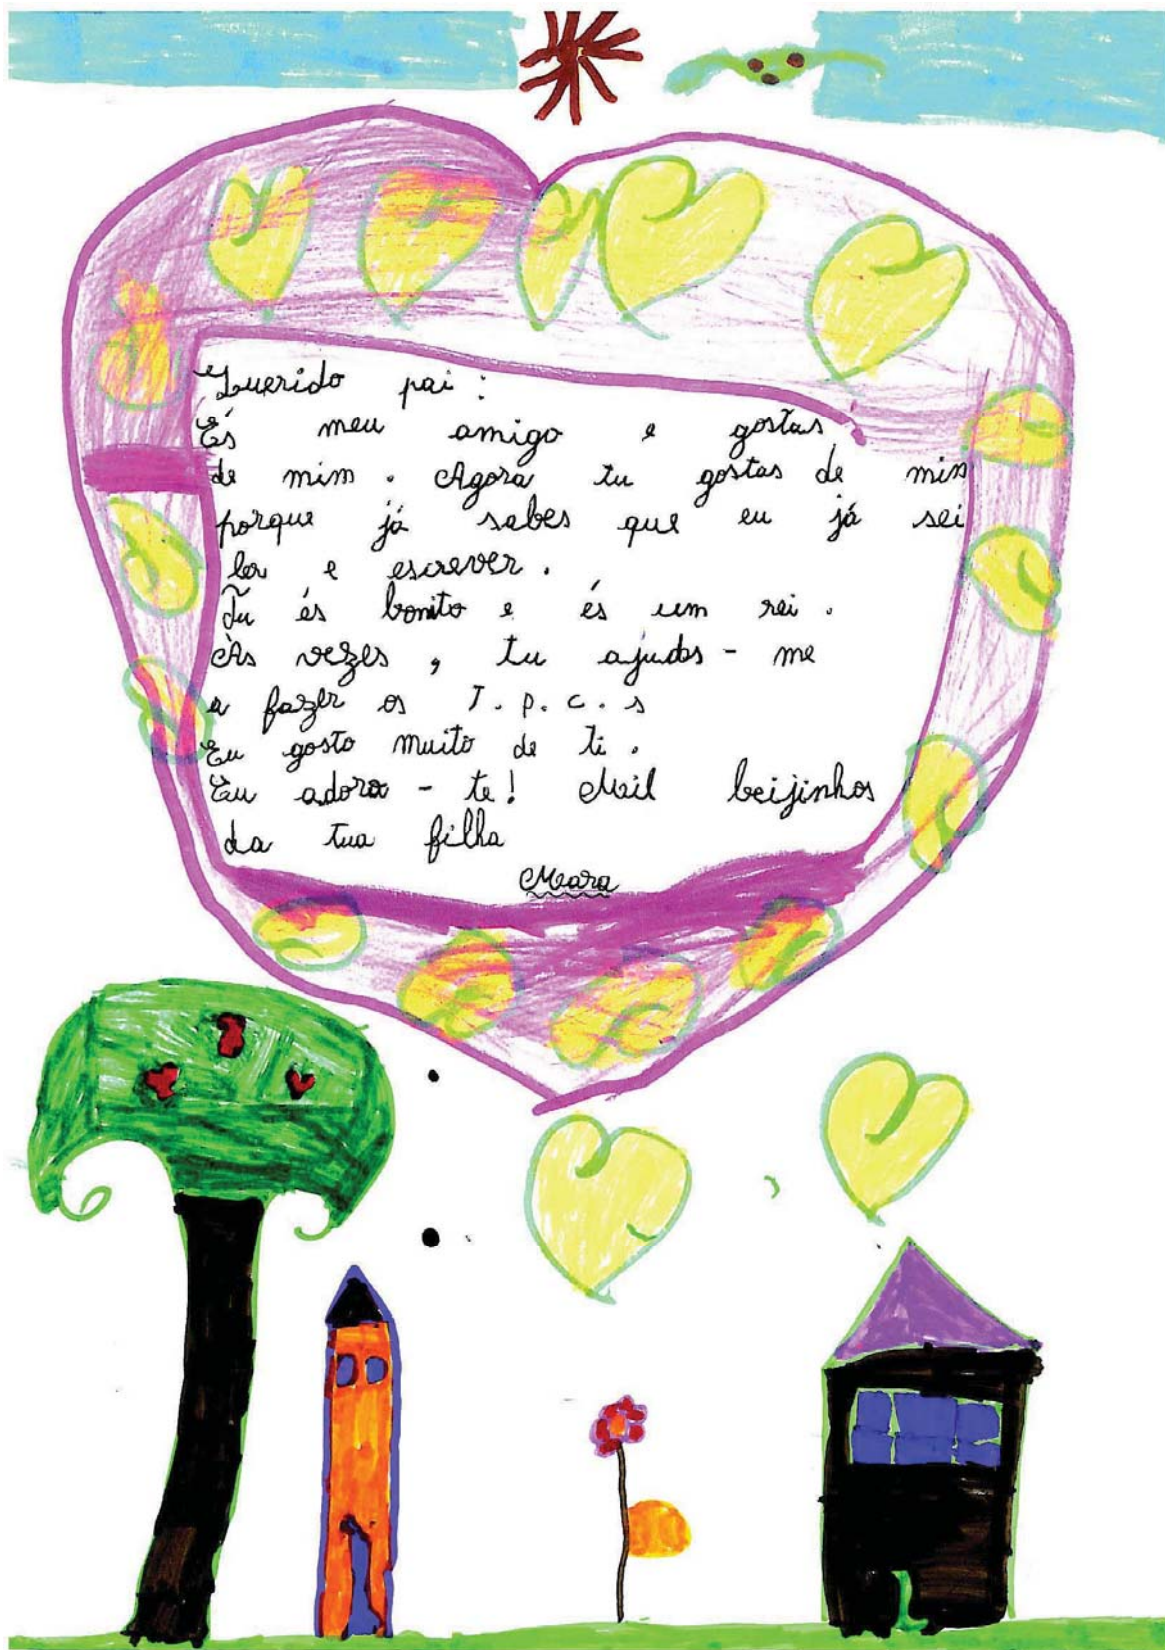 Querido pai :
És meu amigo e gostas
de mim . Agora tu gostas de mim
porque já sabes que eu já sei
ler e escrever .
Tu és bonito e és um rei .
Às vezes , tu ajudas - me
a fazer os T . p . c . s
Eu gosto muito de ti .
Eu adoro - te ! Mil beijinhos
da tua filha
Mara